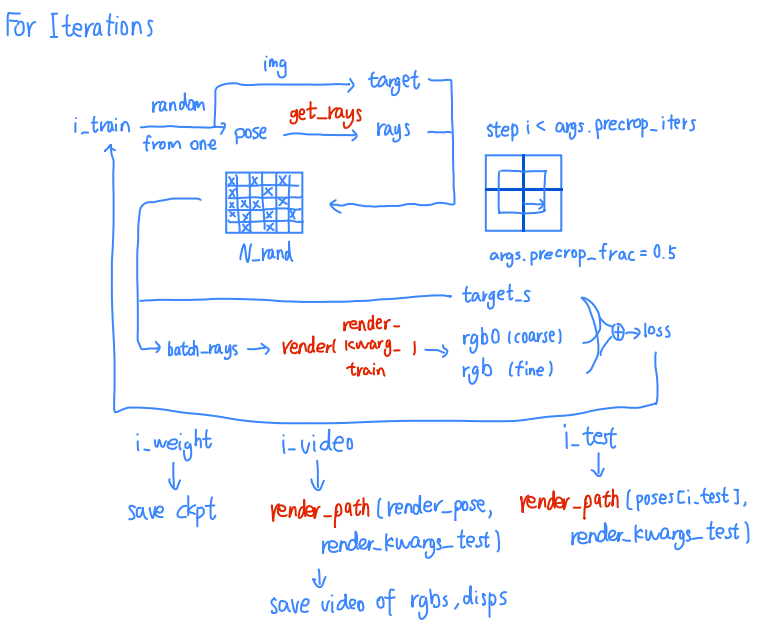 For Iterations
img
target
random
i_train
from one
pose
get_rays
rays
step i < args.precrop_iters
N_rand
args.precrop_frac = 0.5
target_s
batch_rays
render( render_kwarg_train )
rgb0 (coarse)
rgb (fine)
loss
i_weight
save ckpt
i_video
render_path (render_pose,
render_kwargs_test)
save video of rgbs, disps
i_test
render_path (poses[i_test],
render_kwargs_test)